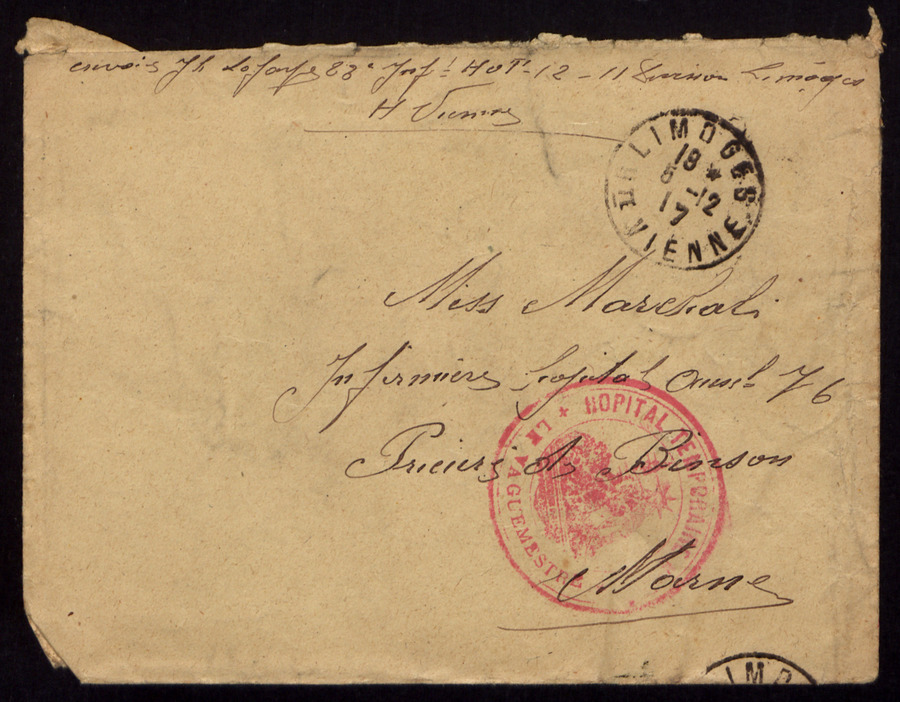 envoi Jh Lafarge 83e Infie Hopl-12-11 Division Limoges
Hte Vienne
LIMOGES
18 *
5 -12
17
VIENNE
Miss Marchal
Infirmière hopital Auxil 76
HOPITAL TEMPORAIRE
LE VAGUEMESTRE
Prieuré de Binson
Marne
LIMO